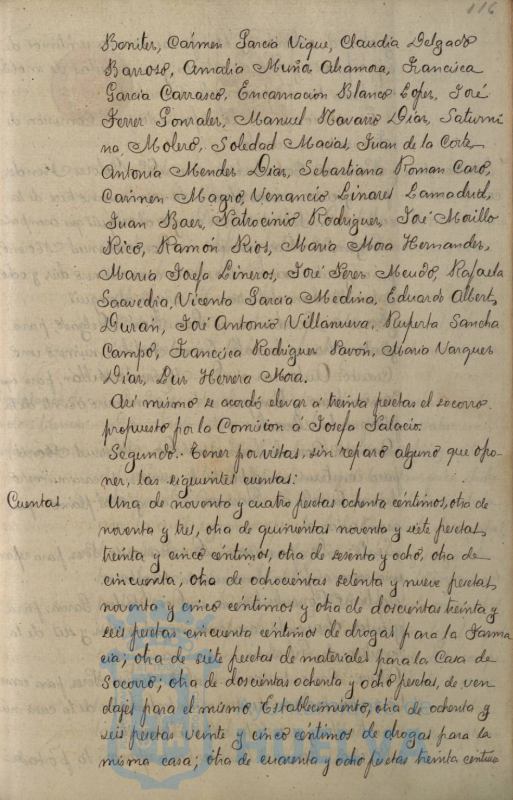 116
Benitez, Cármen Garcia Vique, Claudia Delgado
Barroso, Amalia Muñoz Ahamora, Francisca
Garcia Carrasco, Encarnacion Blanco Lopez, José
Ferrer Gonzalez, Manuel Navarro Diaz, Saturni
na, Molero, Soledad Macias, Juan de la Corte,
Antonia Mendez Diaz, Sebastiana Roman Caro,
Carmen Magro, Venancio Linares Lamadrid,
Juan Baez, Patrocinio Rodriguez, José Morillo
Rico, Ramón Rios, Maria Mora Hernandez,
Maria Josefa Lineros, José Perez Meudo, Rafaela
Saavedra, Vicenta Garcia Medina, Eduardo Albert,
Durán, José Antonio Villanueva, Ruperta Sancha
Campo, Francisca Rodriguez Pavón, Maria Vazquez
Diaz, Luis Herrera Mora.
Así mismo se acordó elevar á treinta pesetas el socorro
propuesto por la Comision á Josefa Palacio.
Segundo. Tener por vistas, sin reparo alguno que opo-
ner, las siguientes cuentas:
Cuentas
Una de noventa y cuatro pesetas ochenta céntimos, otra de
noventa y tres, otra de quinientas noventa y siete pesetas,
treinta y cinco céntimos, otra de sesenta y ocho, otra de
cincuenta; otra de ochocientas setenta y nueve pesetas,
noventa y cinco céntimos y otra de doscientas treinta y
seis pesetas cincuenta céntimos de drogas para la Farma
cia; otra de siete pesetas de materiales para la Casa de
Socorro; otra de doscientas ochenta y ocho pesetas, de ven
dajes para el mismo Establecimiento, otra de ochenta y
seis pesetas veinte y cinco céntimos de drogas para la
misma casa; otra de cuarenta y ocho pesetas treinta céntimos
HUELVA